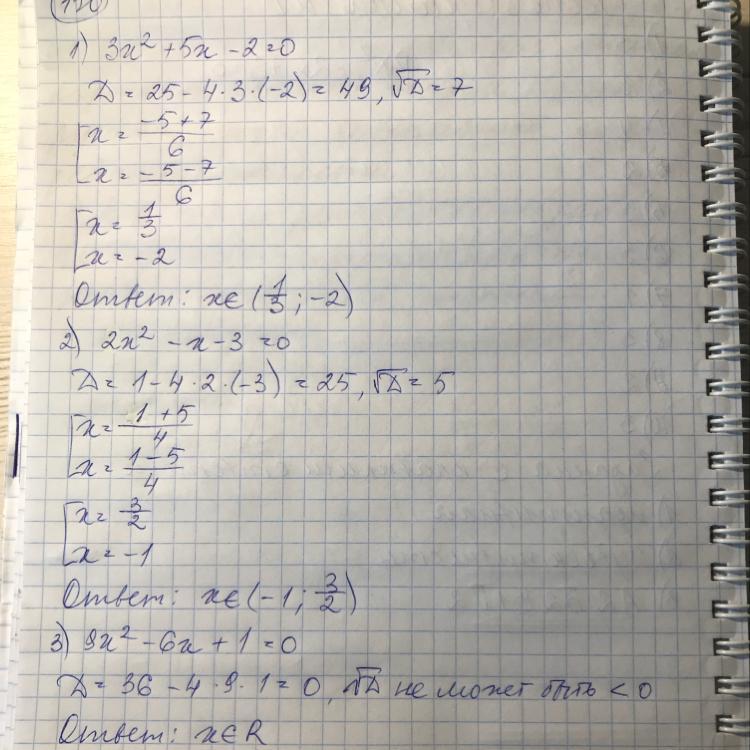 1) 3x² + 5x - 2 = 0
D = 25 - 4 · 3 · (-2) = 49, √D = 7
[x = (-5 + 7)/6
x = (-5 - 7)/6
[x = 1/3
x = -2
Ответ: x ∈ (1/3; -2)
2) 2x² - x - 3 = 0
D = 1 - 4 · 2 · (-3) = 25, √D = 5
[x = (1 + 5)/4
x = (1 - 5)/4
[x = 3/2
x = -1
Ответ: x ∈ (-1; 3/2)
3) 9x² - 6x + 1 = 0
D = 36 - 4 · 9 · 1 = 0, √D не может быть < 0
Ответ: x ∈ R